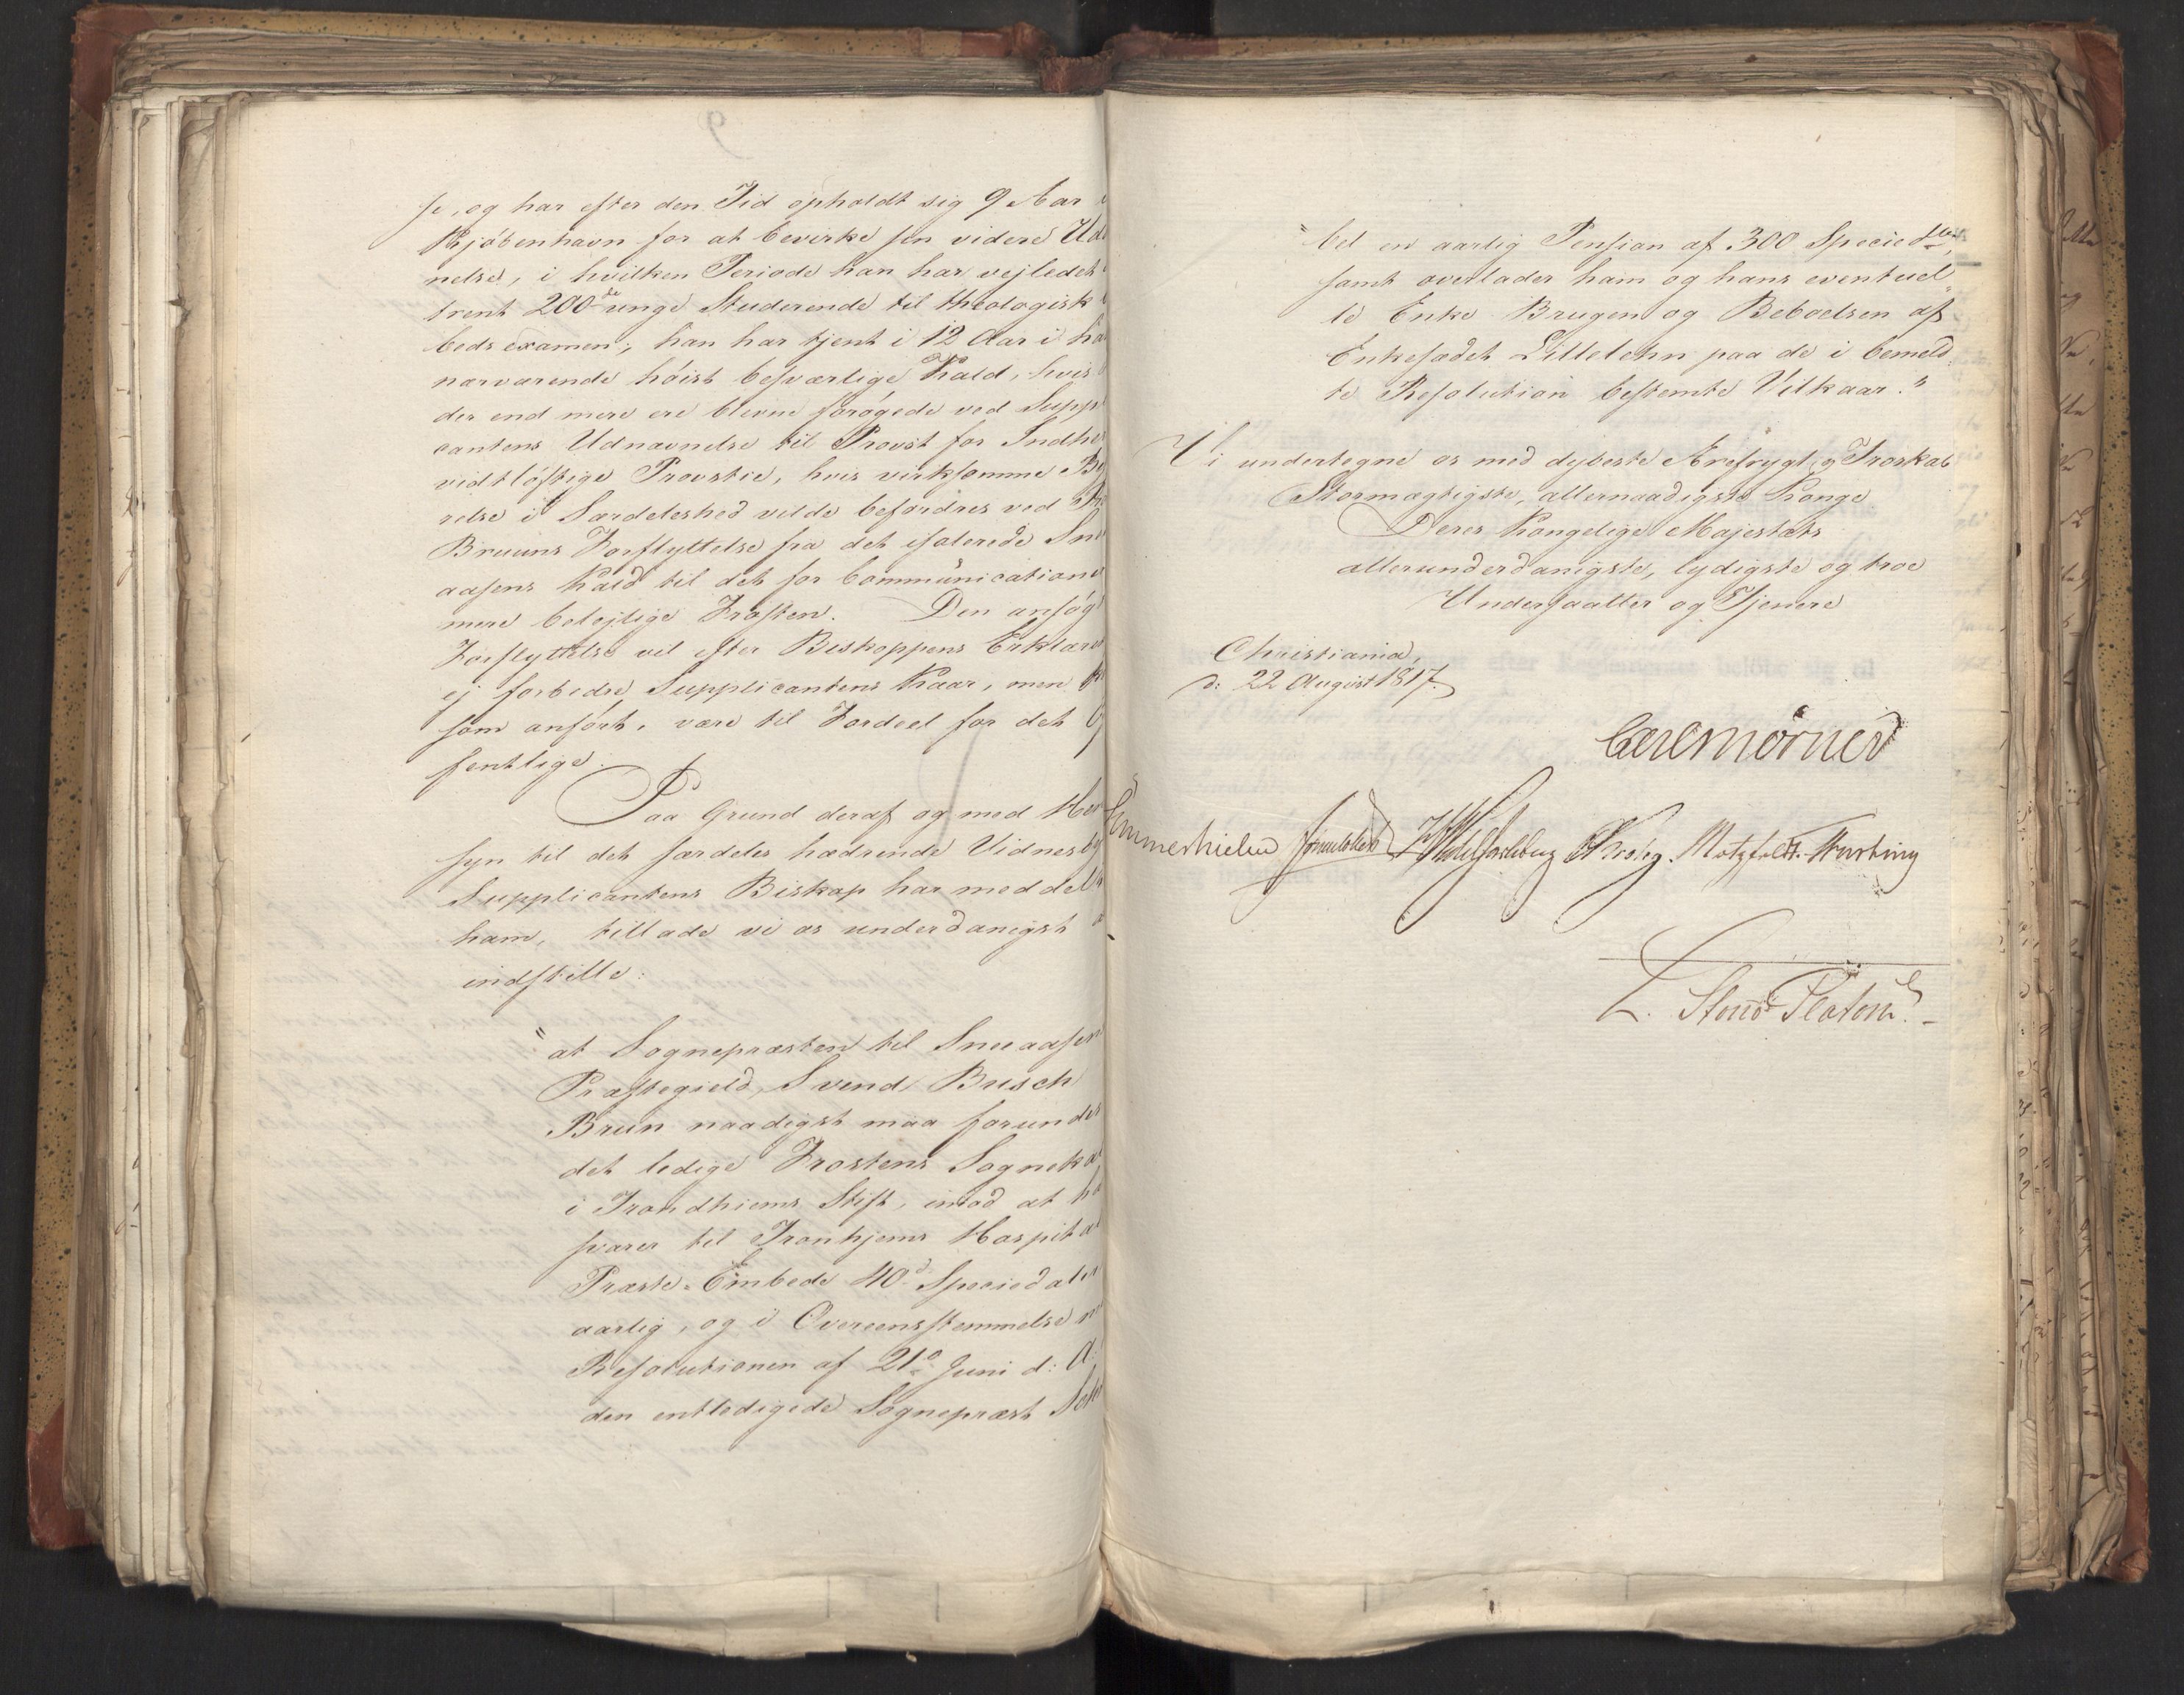 se, og har efter den Tid opholdt sig 9 Aar
Kjöbenhavn for at bevirke sin videre Ud
nelse, i hvilken Periode han har vejledet
trent 200de unge Studerende til theologisk
beds examen; han har tjent i 12 Aar i
nærværende höist besværlige Kald, hvis
der end mere ere blevne forögede ved Supp
cantens Udnævnelse til Provst for Indhe
vidtlöftige Provstie, hvis virksomme Be
relse i Særdeleshed vilde befordres ved
Bruuns Forflyttelse fra det isolerede Sne
aasens Kald til det for Communicationen
mere belejlige Frosten. Den ansögt
Forflyttelse vil efter Biskoppens Erklære
ej forbedre Supplicantens Kaar, men
som anfört, være til Fordeel for det
fentlige.
Paa Grund deraf og med Hen
syn til det særdeles hædrende Vidnesby
Supplicantens Biskop har meddelt
ham, tillade vi os underdanigst
indstille:
"at Sognepræsten til Sneaasen
Præstegield, Svend Busch
Brun naadigst maa forundes
det ledige Frostens Sognekal
i Trondhiems Stift, imod at ha
svarer til Tronhjems Hospital
Præste-Embede 40d Speciedaler
aarlig, og i Overeensstemmelse
Resolutionen af 21o Juni d: A:
den entledigede Sognepræst
"bel en aarlig Pension af 300 Speciedlr,
samt overlader ham og hans eventuel
le Enke Brugen og Beboelsen af
Enkesædet Lillelehn paa de i bemeld
te Resolution bestemte Vilkaar."
Vi undertegne os med dybeste Ærefrygt og Troskab
Stormægtigste, allernaadigste Konge
Deres Kongelige Majestæts
allerunderdanigste, lydigste og troe
Undersaatter og Tjenere
Christiania,
d: 22 August 1817.
Carl Mörner
Sommerhielm Krohg. Motzfeldt.
L. Stoud Platou